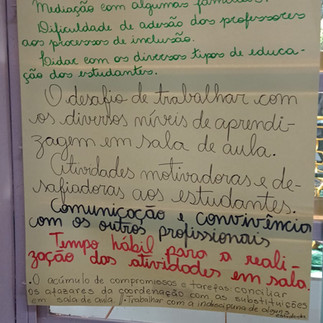 Mediação com algumas famílias.
Dificuldade de adesão dos professores
aos processos de inclusão.
Lidar com os diversos tipos de educa-
ção dos estudantes.
O desafio de trabalhar com
os diversos níveis de aprendi-
zagem em sala de aula.
Atividades motivadoras e de-
safiadoras aos estudantes.
Comunicação e convivência
com os outros profissionais
Tempo hábil para a reali-
zação das atividades em sala
. O acúmulo de compromissos e tarefas: conciliar
os afazeres da coordenação com as substituições
em sala de aula / . Trabalhar com a indisciplina de alguns